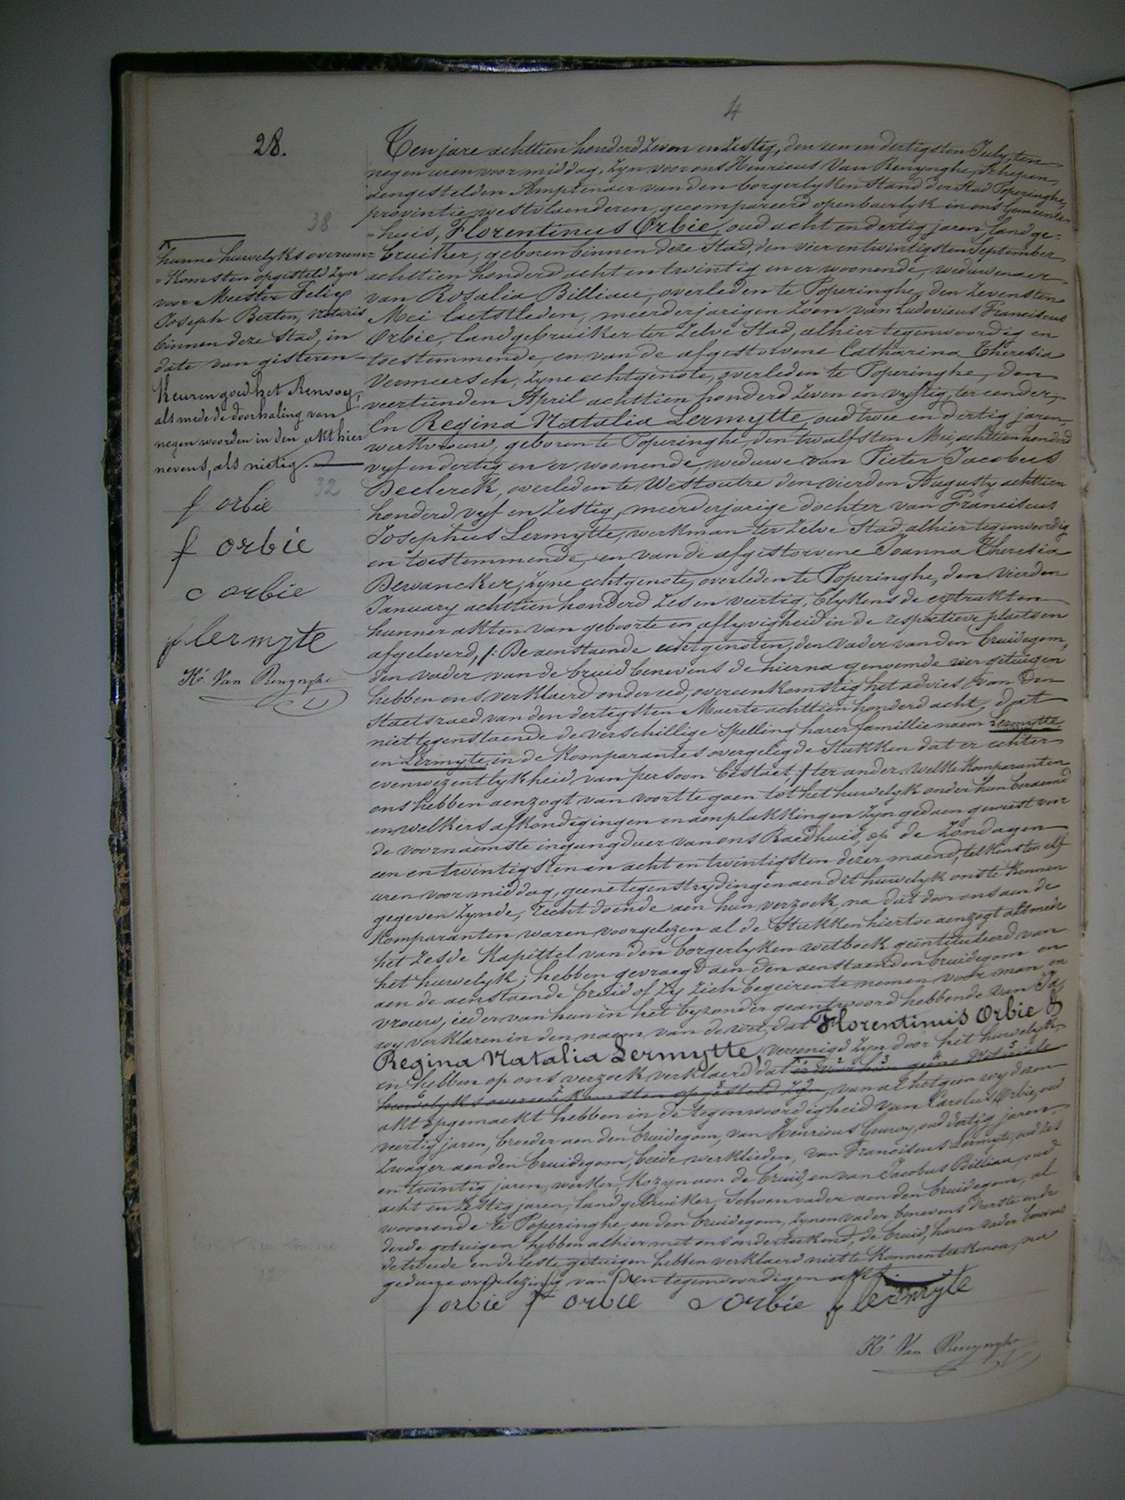 4
28.
Ten jare achttien honderd zeven en zestig, den een en dertigsten July, ten
negen uren voor middag, zyn voor ons Henricus Van Renynghe, Schepen,
aengestelden Amptenaer van den borgerlyken stand der Stad Poperinghe,
provintie westvlaenderen, gecompareerd openbaerlyk in ons Gemeente-
-huis, Florentinus Orbie, oud acht en dertig jaren, landge-
-bruiker, geboren binnen deze Stad, den vier en twintigsten September
achttien honderd acht en twintig en er woonende, weduwenaer
van Rosalia Billiau, overleden te Poperinghe, den zevensten
Mei laetstleden, meerderjarigen zoon van Ludovicus Franciscus
Orbie, landgebruiker ter zelve Stad, alhier tegenwoordig en
toestemmende, en van de afgestorvene Catharina Theresia
Vermeersch, zyne echtgenote, overleden te Poperinghe, den
veertienden April achttien honderd zeven en vyftig, ter eender,
En Regina Natalia Lermytte, oud twee en dertig jaren,
werkvrouw, geboren te Poperinghe, den twaelfsten Mei achttien honderd
vyf en dertig en er woonende, weduwe van Pieter Jacobus
Declerck, overleden te Westoutre den vierden Augusty achttien
honderd vyf en zestig, meerderjarige dochter van Franciscus
Josephus Lermytte, werkman ter zelve Stad, alhier tegenwoordig
en toestemmende, en van de afgestorvene Joanna Theresia
Dewancker, zyne echtgenote, overleden te Poperinghe, den vierden
January achttien honderd zes en veertig, blykens de extrakten
hunner akten van geboorte en aflyvigheid in de respectieve plaetsen
afgeleverd, /: De aenstaende echtgenoten, den vader van den bruidegom,
den vader van de bruid benevens de hierna genoemde vier getuigen
hebben ons verklaerd onder eed, overeenkomstig het advies van den
Staetsraed van den dertigsten Maerte achttien honderd acht, dat
niettegenstaende de verschillige spelling harer famillie naem Lermytte
en Lermyte in de komparantes overgelegde stukken dat er echter
evenwezentlykheid van persoon bestaet, :/ ter ander, welke komparanten
ons hebben aenzogt van voort te gaen tot het huwelyk onder hun beraemd
en welkers afkondigingen en aenplakkingen zyn gedaen geweest voor
de voornaemste ingangdeur van ons Raedhuis, op de zondagen
een en twintigsten en acht en twintigsten dezer maend, telkens ten elf
uren voor middag, geene tegenstrydingen aen dit huwelyk ons te kennen
gegeven zynde, recht doende aen hun verzoek, na dat door ons aen de
komparanten waren voorgelezen al de stukken hiertoe aenzogt alsmede
het zesde kapittel van den borgerlyken wetboek geintituleerd van
het huwelyk, hebben gevraegd aen den aenstaenden bruidegom en
aen de aenstaende bruid of zy zich begeiren te nemen voor man en
vrouw, ieder van hun in het byzonder geantwoord hebbende van Ja,
wy verklaren in den naem van de wet, dat Florentinus Orbie &
Regina Natalia Lermytte, vereenigd zyn door het huwelyk,
en hebben op ons verzoek verklaerd dat
huwelyks overeenkomsten opgesteld zyn, van al hetgeen wy dezen
akt opgemaekt hebben in de tegenwoordigheid van Carolus Orbie, oud
veertig jaren, broeder aen den bruidegom, van Henricus oud dertig jaren,
zwager aen den bruidegom, beide werklieden, van Franciscus Lermyte, oud zes
en twintig jaren, werker, kozyn aen de bruid, en van Jacobus Billiau, oud
acht en zestig jaren, landgebruiker, schoonvader aen den bruidegom, al
woonende te Poperinghe, en den bruidegom, zynen vader benevens d'eerste en de
derde getuigen hebben alhier met ons onderteekend, de bruid, haren vader benevens
de tweede en de leste getuigen hebben verklaerd niet te konnen teekenen, naer
gedaene overlezing van den tegenwoordigen akt.
f orbie f orbie c orbie f lermyte
Hs Van Renynghe
38
hunne huwelyks overeen=
=komsten opgesteld zyn
voor Meester Felix
Joseph Berten, notaris
binnen deze Stad, in
date van gisteren
Keuren goed het Renvooy,
als mede de doorhaling van
negen woorden in den akt hier
nevens, als nietig.
32
f orbie
f orbie
c orbie
f lermyte
Hs Van Renynghe